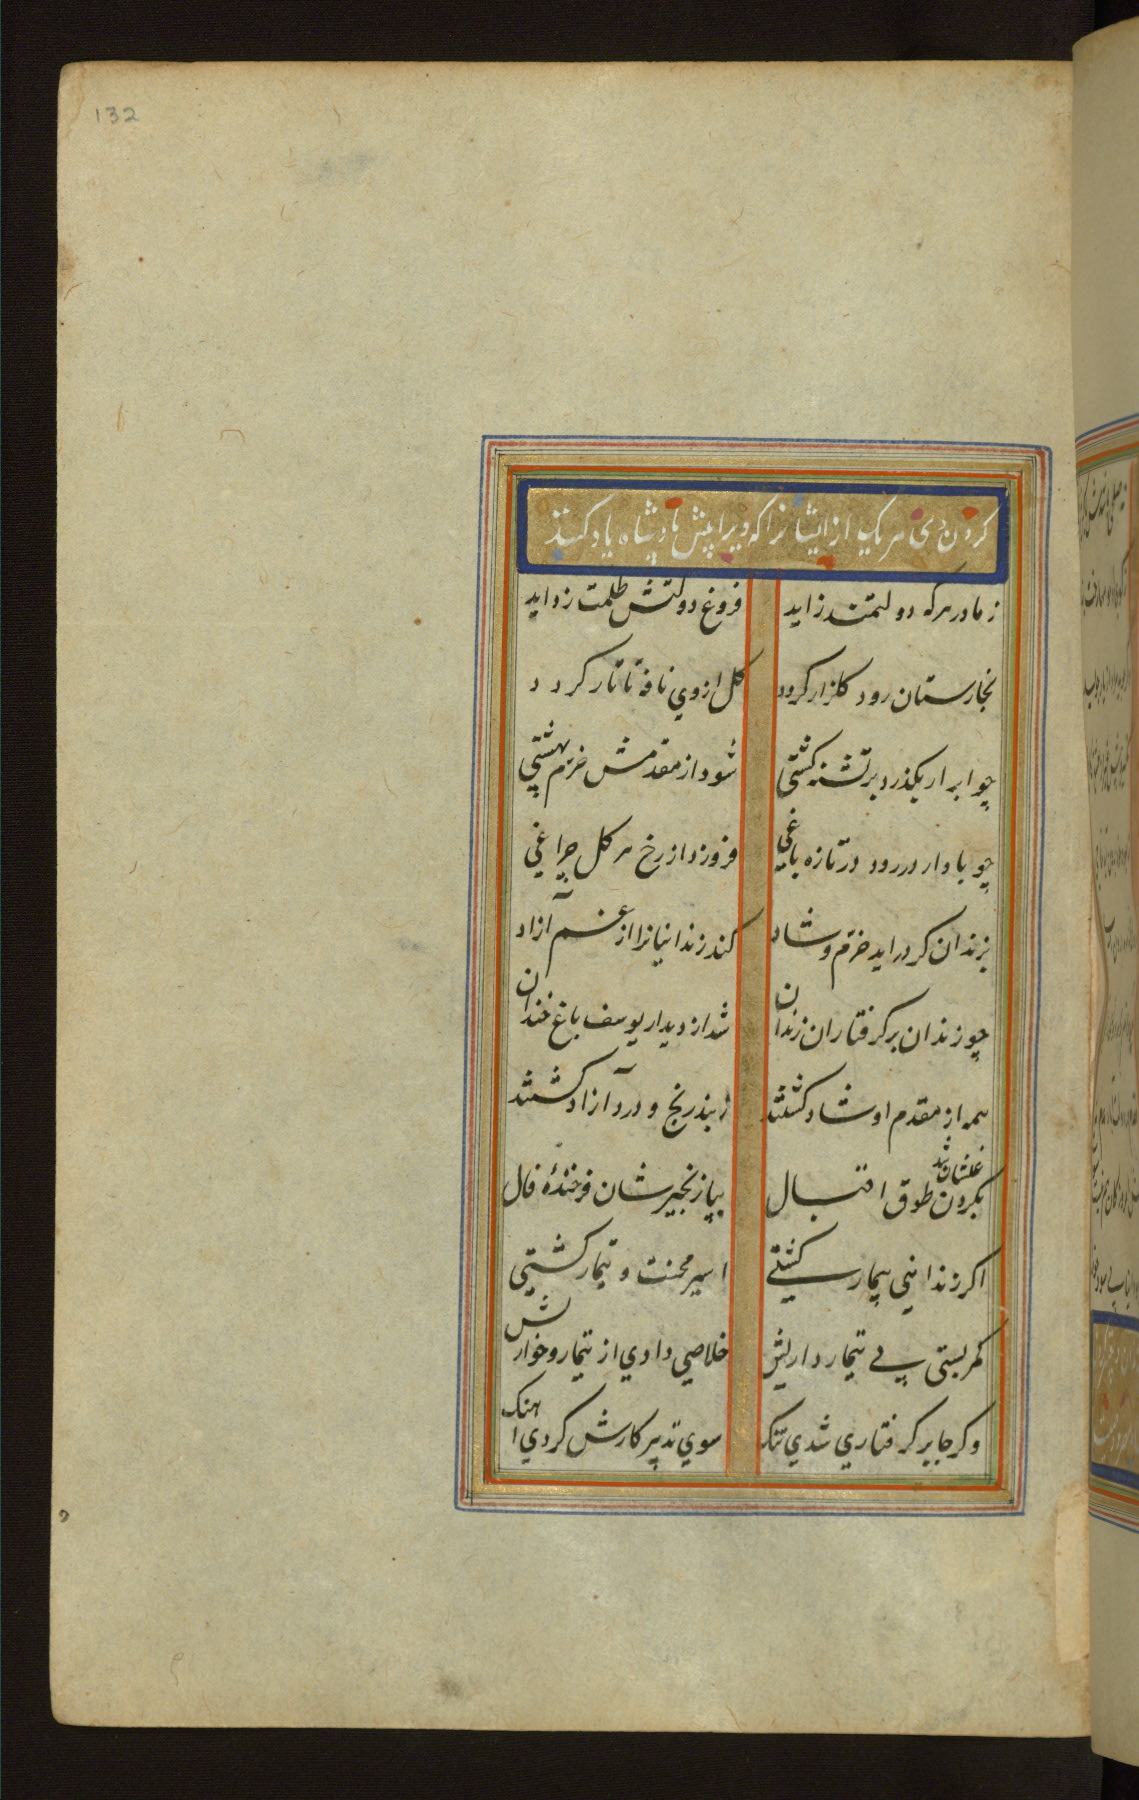 132
کردن وی هر یک از ایشانرا که ویرا پیش پادشاه یاد کنند
ز مادر هر که دولتمند زاید فروغ دولتش ظلمت زداید
بخارستان رود کلزار کردد کل از وي نافهٔ تاتار کردد
چو ابر ار بکذرد بر تشنه کشتی شود از مقدمش خرم بهشتي
چو باد ار در رود در تازه باغي فروزد از رخ هر کل چراغي
بزندان کر در اید خرّم و شاد کند زندانیانرا از غم آزاد
چو زندان بر کرفتاران زندان شد از دیدار یوسف باغ خندان
همه از مقدم او شاد کشتند ز بند رنج و درد آزاد کشتند
بکردن غلشان شد طوق اقبال بپا زنجیرشان فرخندهٔ فال
اکر زنداني بیمار کشتي اسیر محنت و تیمار کشتي
کمر بستی پی تیمار داریش خلاصي دادي از تیمار و خواریش
وکر جا بر کرفتاري شدي تنک سوي تدبیر کارش کردي اهنک